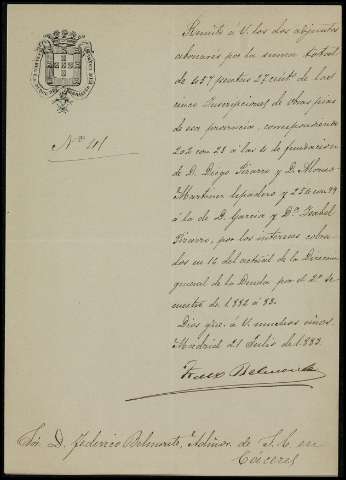 Nº 41
Remito á V. los dos adjuntos
abonarés por la suma total
de 457 pesetas 27 cent. de las
cinco Inscripciones de obras pias
de esa provincia, correspondiendo
202 con 28 á las 4 de fundacion
de D. Diego Pizarro y D. Alonso
Martinez y 254 con 99
á la de D. Garcia y Dª Isabel
Pizarro, por los intereses cobra-
dos en 14 del actual de la Direccion
general de la Deuda por el 2º Se-
mestre de 1882 á 83.
Dios gue. á V. muchos años
Madrid 21 Julio de 1883.
Belmonte
Sor. D. Federico Belmonte, Admor. de S. E. en
Cáceres